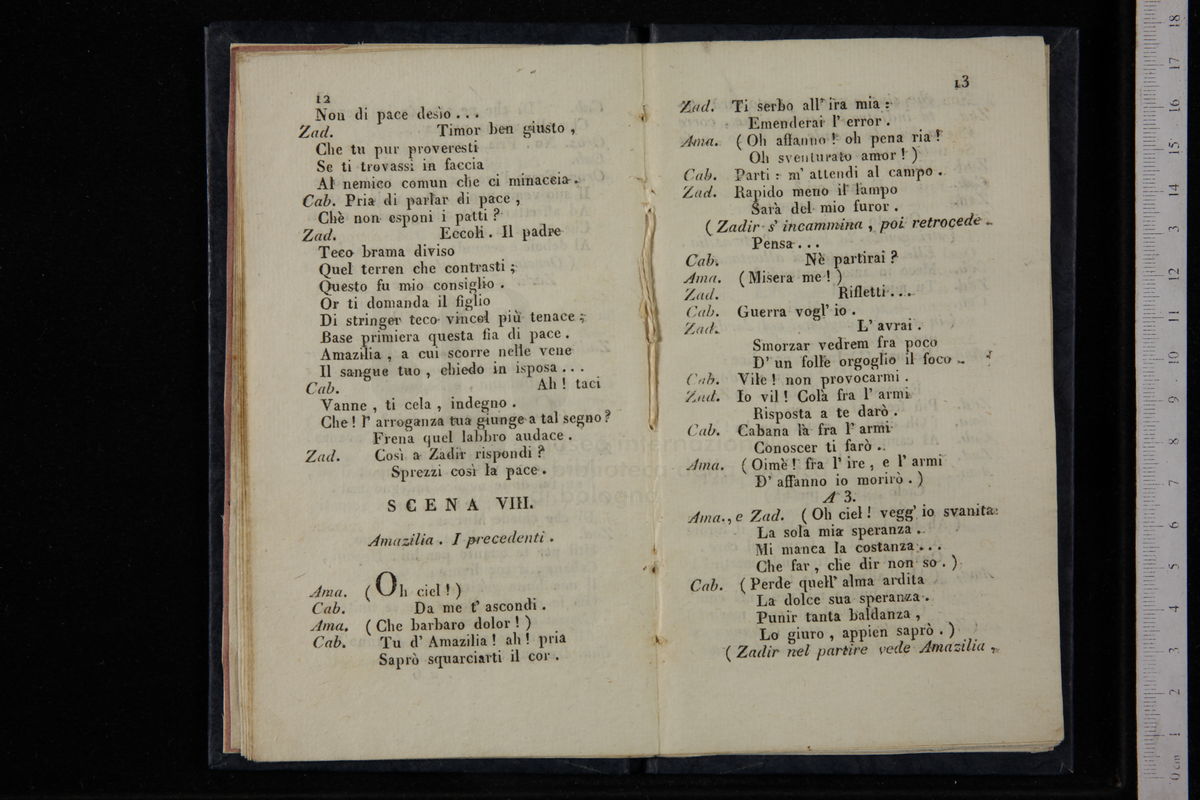 12
Non di pace desìo . . .
Zad. Timor ben giusto ,
Che tu pur proveresti
Se ti trovassi in faccia
Al nemico comun che ci minaccia .
Cab. Pria di parlar di pace ,
Chè non esponi i patti ?
Zad. Eccoli . Il padre
Teco brama diviso
Quel terren che contrasti ;
Questo fu mio consiglio .
Or ti domanda il figlio
Di stringer teco vincol più tenace ;
Base primiera questa fia di pace .
Amazilia , a cui scorre nelle vene
Il sangue tuo , chiedo in isposa . . .
Cab. Ah ! taci
Vanne , ti cela , indegno .
Che ! l' arroganza tua giunge a tal segno ?
Frena quel labbro audace .
Zad. Così a Zadir rispondi ?
Sprezzi così la pace .
SCENA VIII.
Amazilia . I precedenti .
Ama. ( Oh ciel ! )
Cab. Da me t' ascondi .
Ama. ( Che barbaro dolor ! )
Cab. Tu d' Amazilia ! ah ! pria
Saprò squarciarti il cor .
13
Zad. Ti serbo all' ira mia :
Emenderai l' error .
Ama. ( Oh affanno ! oh pena ria !
Oh sventurato amor ! )
Cab. Parti : m' attendi al campo .
Zad. Rapido meno il lampo
Sarà del mio furor .
( Zadir s' incammina , poi retrocede .
Pensa . . .
Cab. Nè partirai ?
Ama. ( Misera me ! )
Zad. Rifletti . . .
Cab. Guerra vogl' io .
Zad. L' avrai .
Smorzar vedrem fra poco
D' un folle orgoglio il foco .
Cab. Vile ! non provocarmi .
Zad. Io vil ! Colà fra l' armi
Risposta a te darò .
Cab. Cabana là fra l' armi
Conoscer ti farò .
Ama. ( Oimè ! fra l' ire , e l' armi
D' affanno io morirò . )
A 3.
Ama., e Zad. ( Oh ciel ! vegg' io svanita
La sola mia speranza .
Mi manca la costanza . . .
Che far , che dir non so . )
Cab. ( Perde quell' alma ardita
La dolce sua speranza .
Punir tanta baldanza ,
Lo giuro , appien saprò . )
( Zadir nel partire vede Amazilia ,